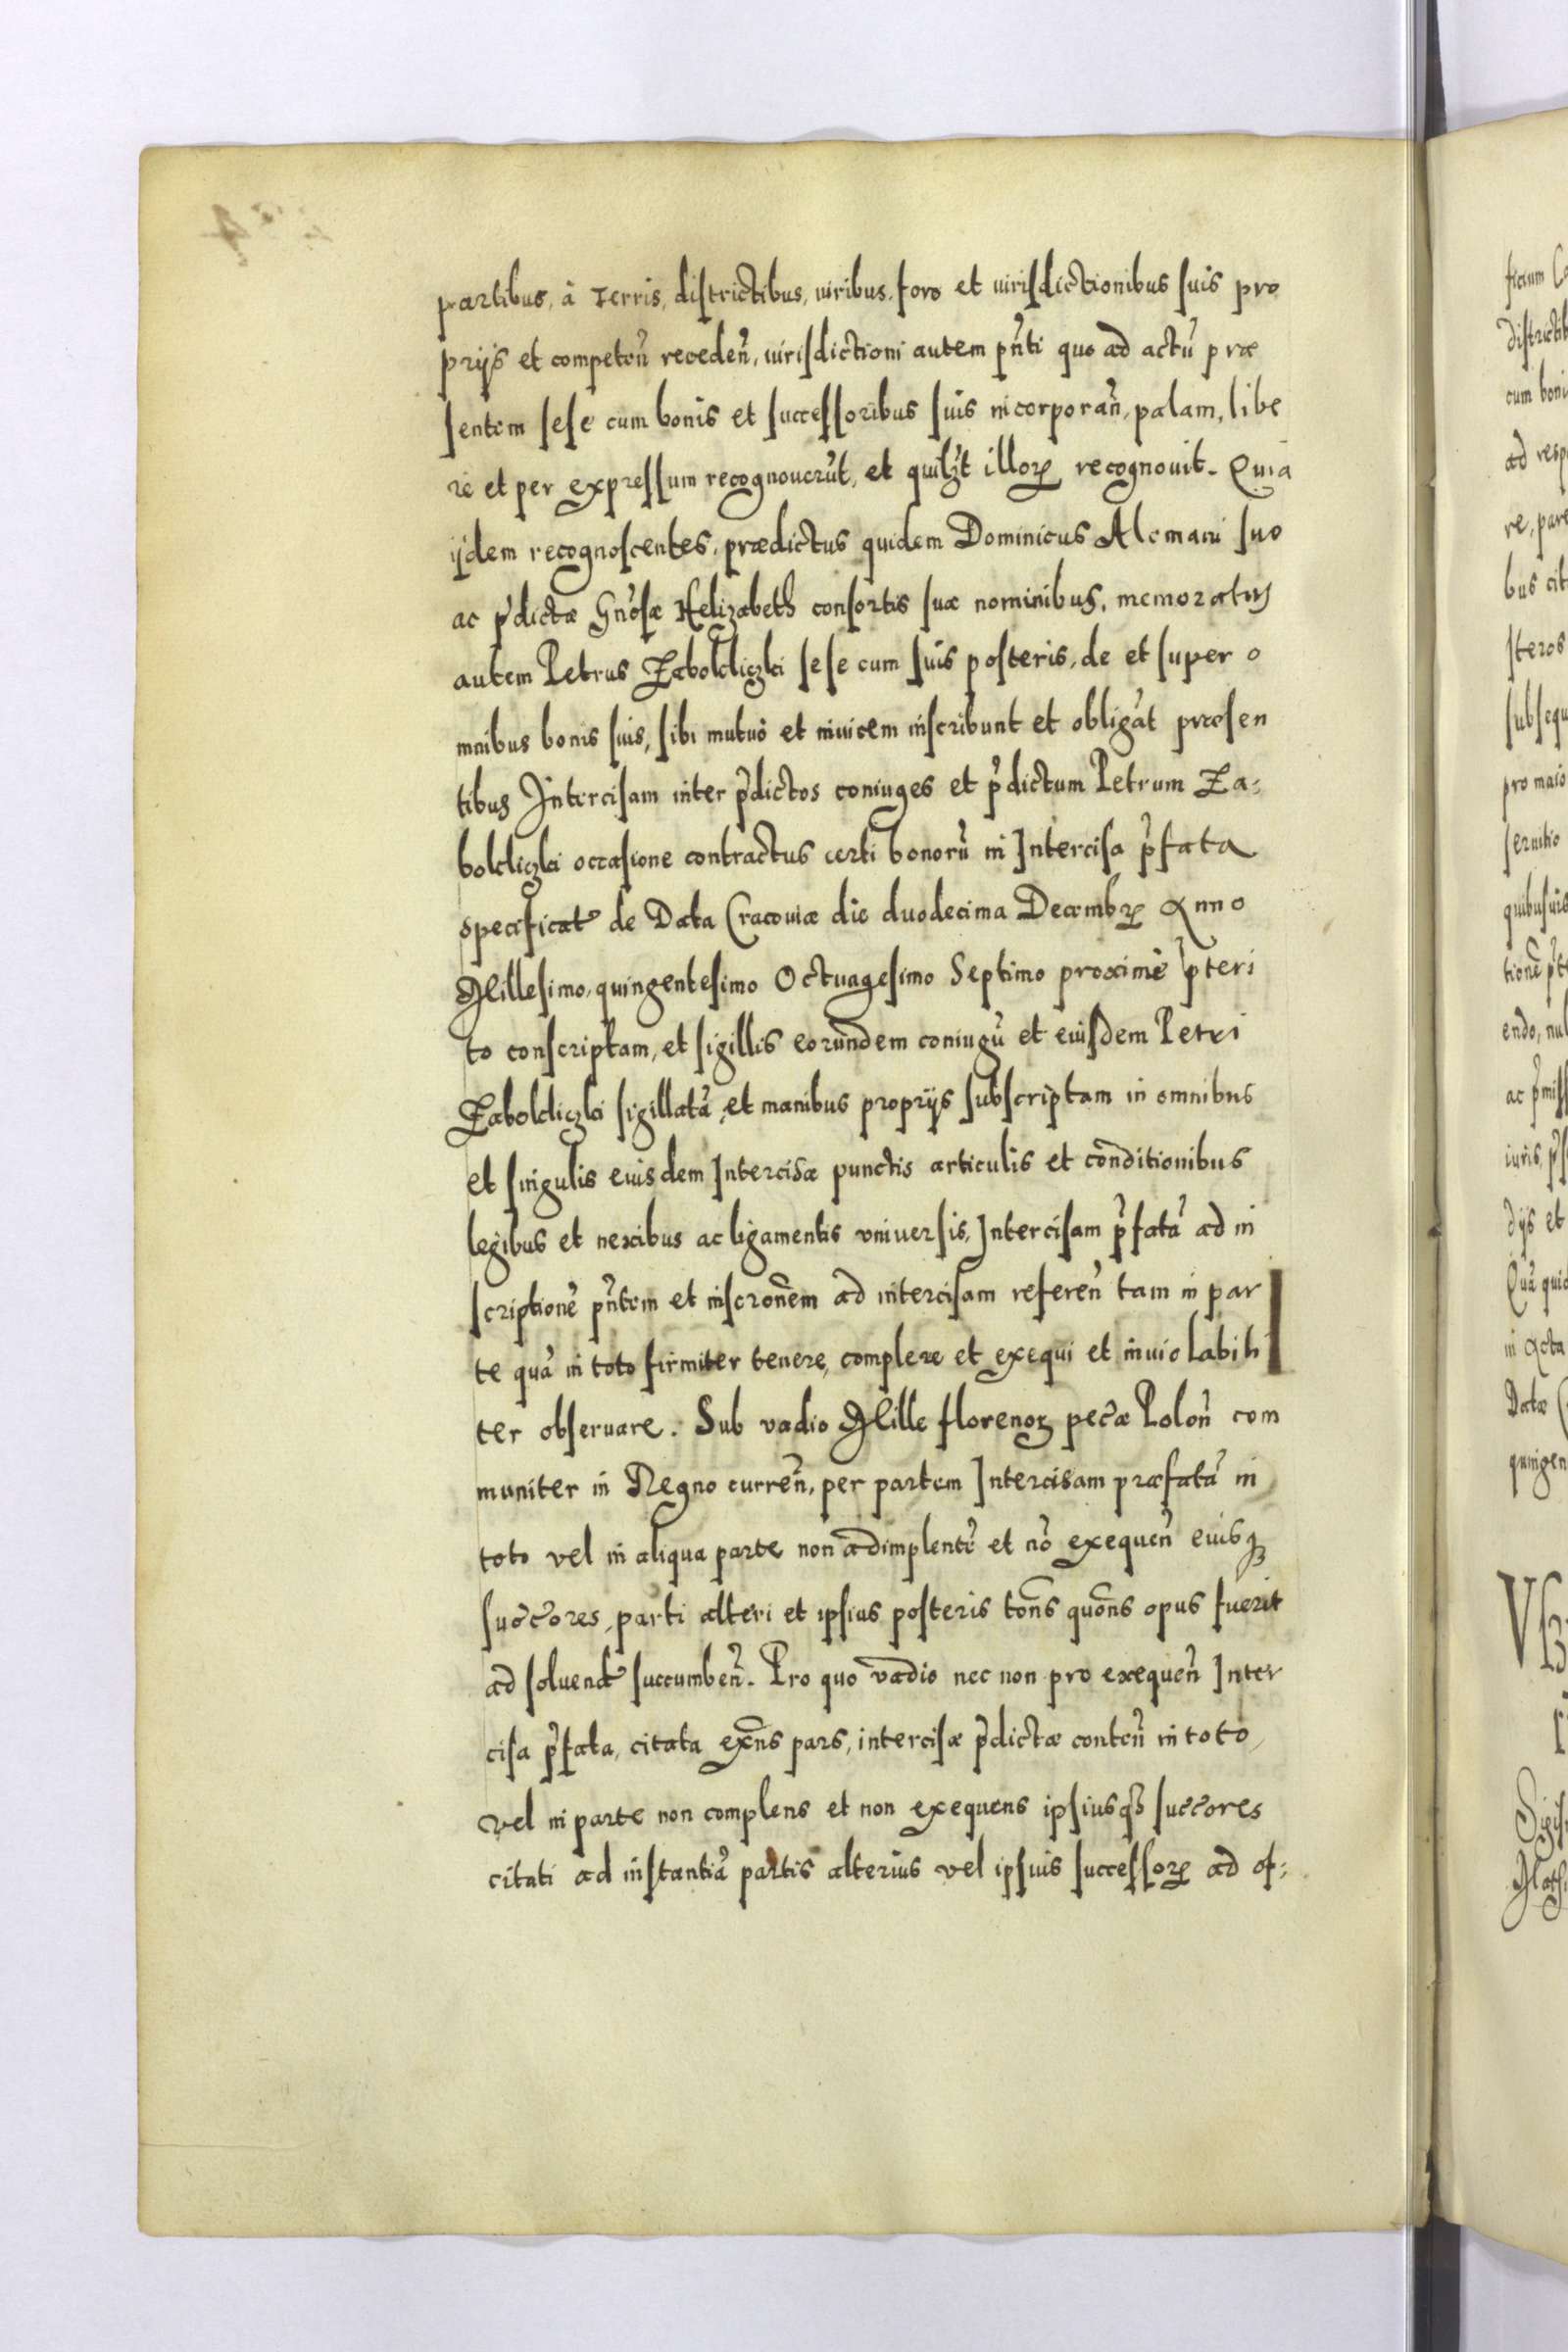 partibus, à terris, districtibus, iuribus, foro et iurisdictionibus suis pro
prijs et competeñ recedeñ, iurisdictioni autem pñti quo ad actũ præ
sentem sese cum bonis et successoribus suis incorporañ, palam, libe
re et per expressum recognouerũt, et quilꝫt illorꝝ recognouit. Quia
ijdem recognoscentes, prædictus quidem Dominicus Alemani suo
ac p̃dictæ Gñosæ Helizabeth consortis suæ nominibus, memoratus
autem Petrus Zabokliczki sese cum suis posteris, de et super o
mnibus bonis suis, sibi mutuò et inuicem inscribunt et obligãt præsen
tibus Intercisam inter p̃dictos coniuges et p̃dictum Petrum Za:
bokliczki occasione contractus certi bonorũ in Intercisa p̃fata
specificat de Data Cracouiæ die duodecima Decembrꝝ Anno
Millesimo, quingentesimo Octuagesimo Septimo proximè p̃teri
to conscriptam, et sigillis eorundem coniugũ et eiusdem Petri
Zabokliczki sigillatã, et manibus proprijs subscriptam in omnibus
et singulis eiusdem Intercisæ punctis articulis et conditionibus
legibus et nexibus ac ligamentis vniuersis, Intercisam p̃fatã ad in
scriptionẽ pñtem et inscronẽm ad intercisam refereñ tam in par
te quã in toto firmiter tenere, complere et exequi et inuiolabili
ter obseruare. Sub vadio Mille florenoꝝ pecæ Poloñ com
muniter in Regno curreñ, per partem Intercisam præfatã in
toto vel in aliqua parte non adimplentẽ et nõ exequeñ eiusqꝫ
succores, parti alteri et ipsius posteris tons quons opus fuerit
ad soluend succumbeñ. Pro quo vadio nec non pro exequeñ Inter
cisa p̃fata, citata exns pars, intercisæ p̃dictæ conteñ in toto,
vel in parte non complens et non exequens ipsiusqꝫ succores
citati ad instantiã partis alterius vel ipsius successorꝝ ad of: